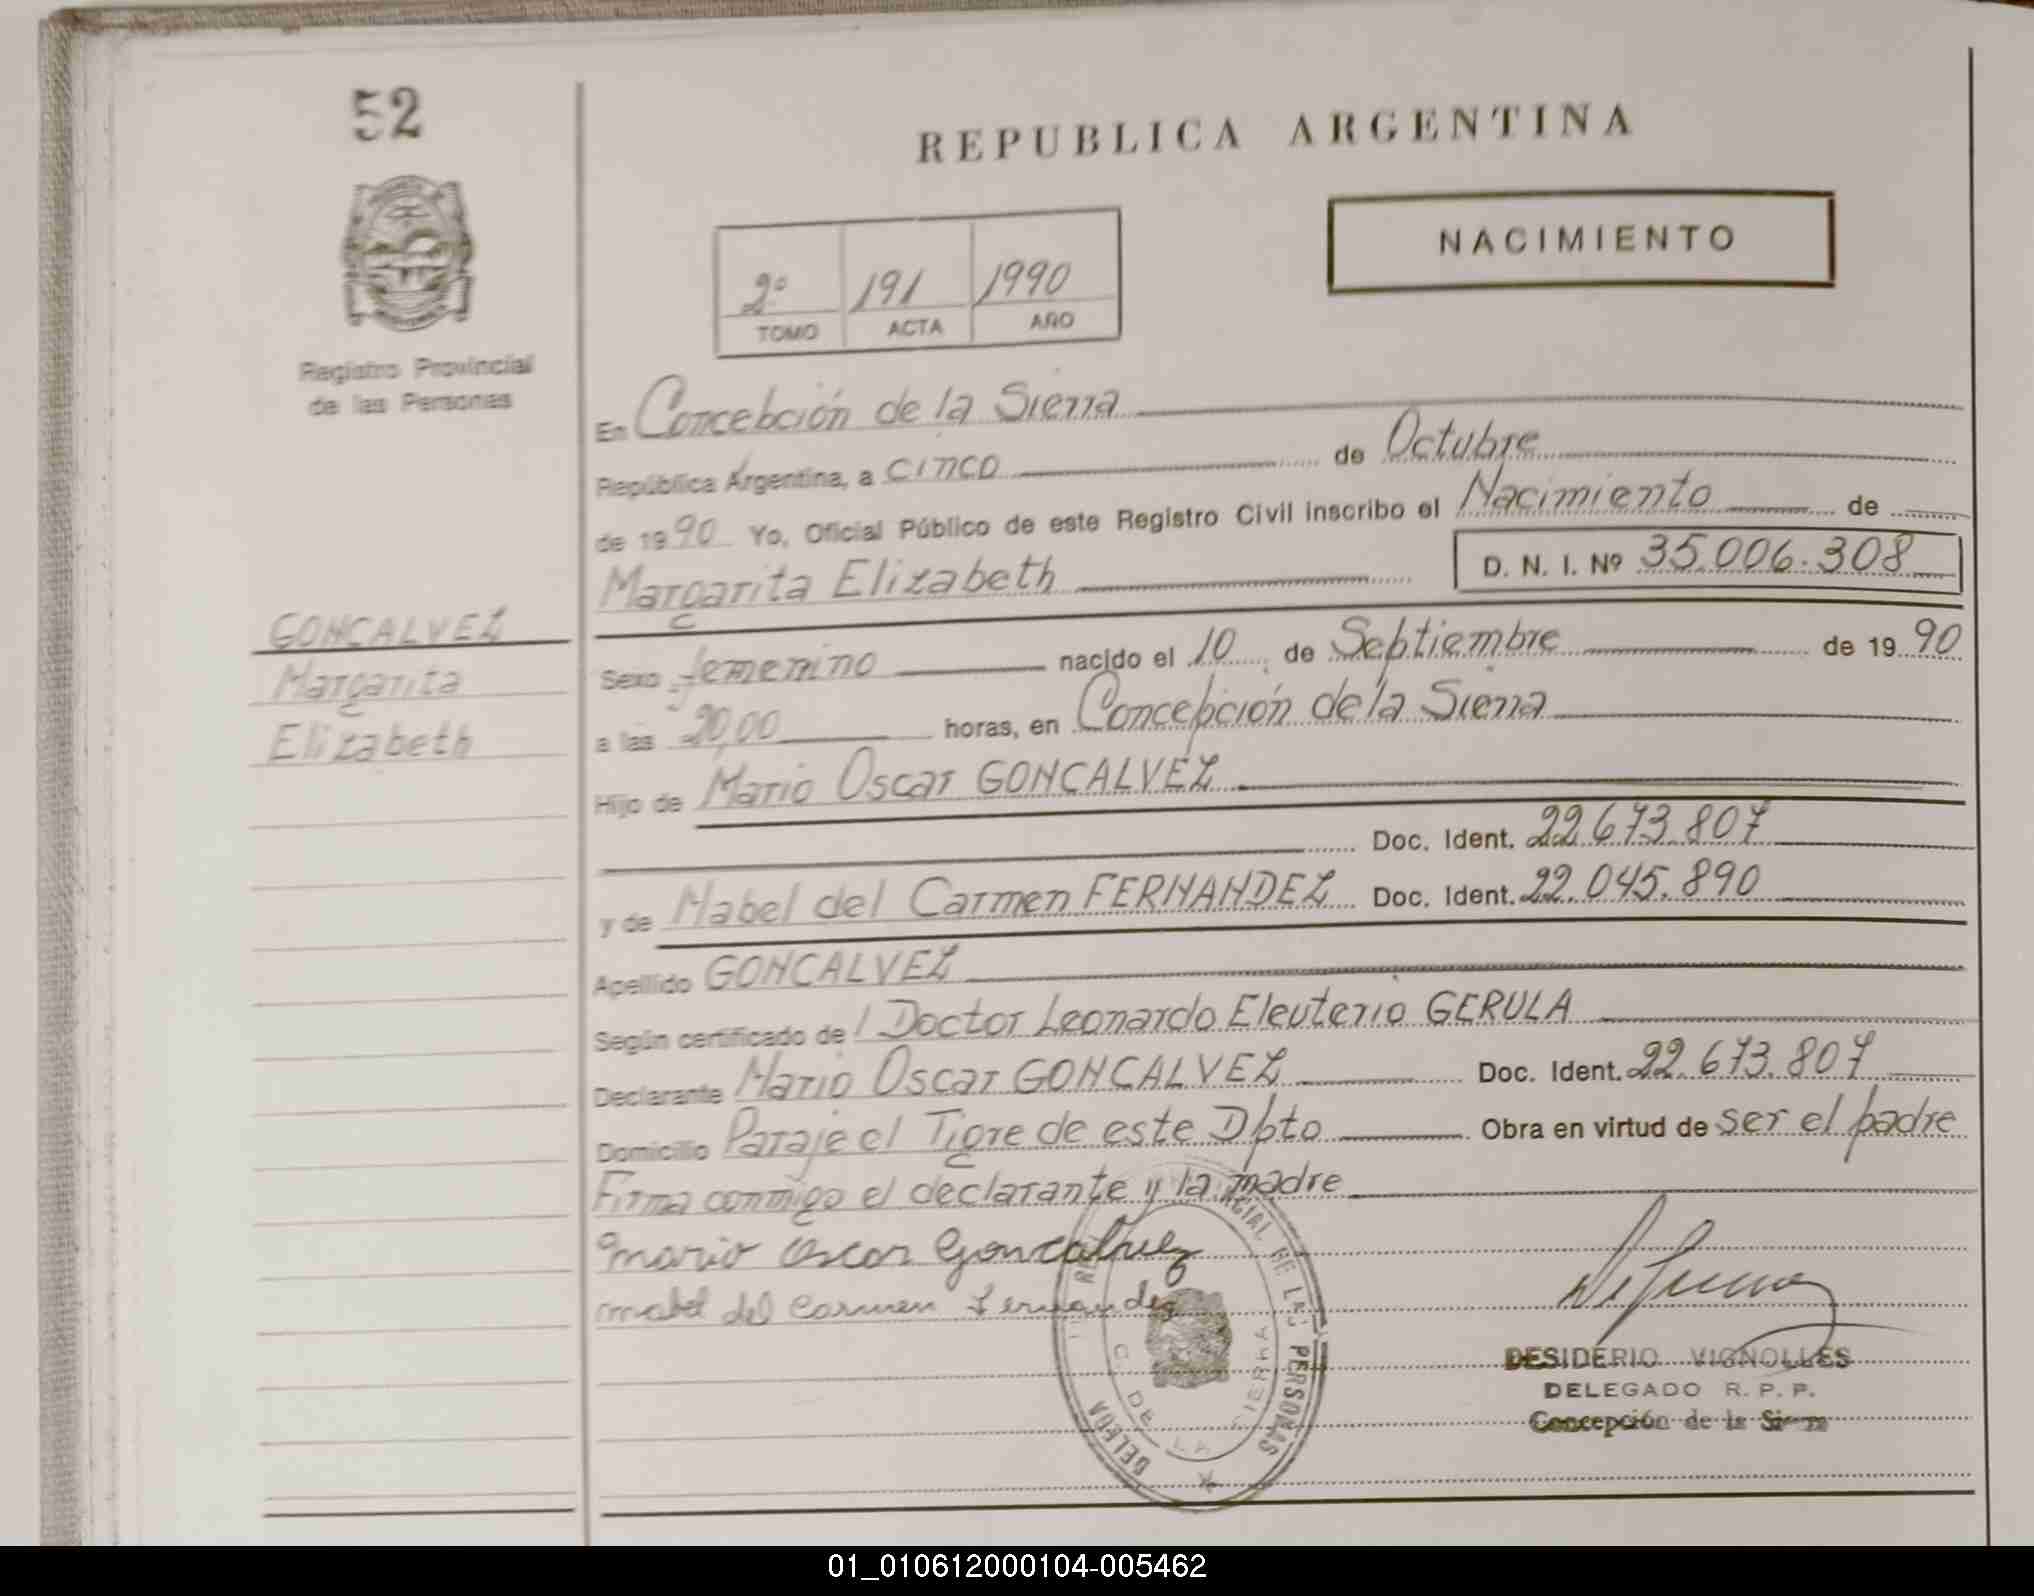 52
REPUBLICA ARGENTINA
NACIMIENTO
2º 191 1990
TOMO ACTA AÑO
Registro Provincial
de las Personas
En Concepción de la Sierra
República Argentina, a cinco de Octubre
de 1990 Yo, Oficial Público de este Registro Civil inscribo el Nacimiento de
Margarita Elizabeth D. N. I. Nº 35.006.308
GONCALVEZ
Margarita
Elizabeth
Sexo femenino nacido el 10 de Septiembre de 1990
a las 20,00 horas, en Concepción de la Sierra
Hijo de Mario Oscar GONCALVEZ
Doc. Ident. 22.673.807
y de Mabel del Carmen FERNANDEZ Doc. Ident. 22.045.890
Apellido GONCALVEZ
Según certificado del Doctor Leonardo Eleuterio GERULA
Declarante Mario Oscar GONCALVEZ Doc. Ident. 22.673.807
Domicilio Paraje el Tigre de este Dpto Obra en virtud de ser el padre
Firma conmigo el declarante y la madre
Mario Oscar Goncalvez
Mabel del Carmen Fernandez
DE LAS PERSONAS
C. DE LA SIERRA
DESIDERIO VIGNOLLES
DELEGADO R. P. P.
Concepción de la Sierra
01_010612000104-005462